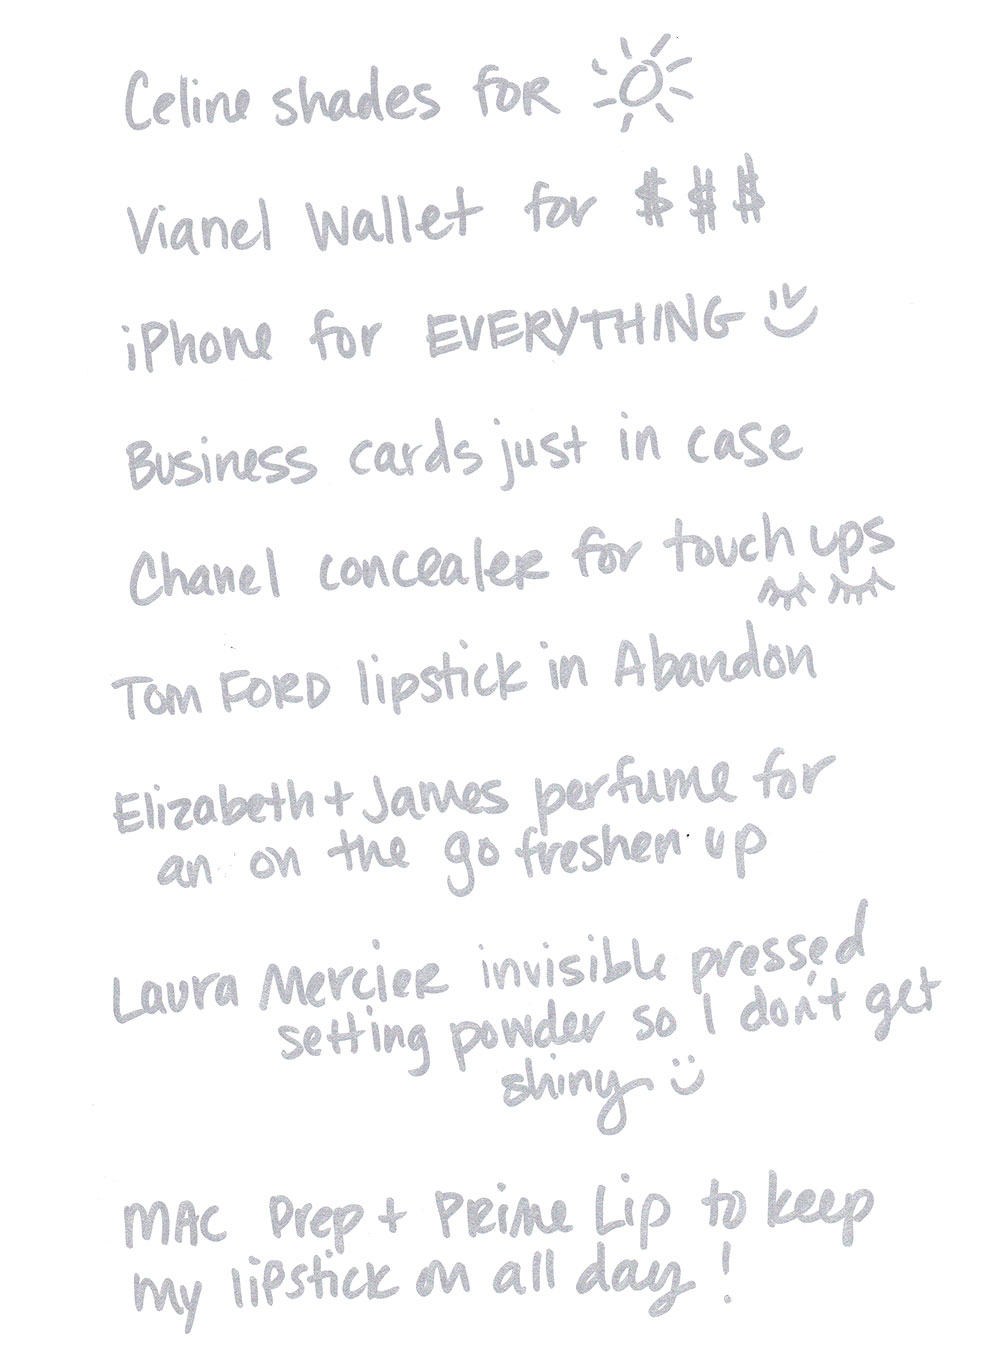 Celine shades for
Vianel Wallet for $$$
iPhone for EVERYTHING
Business cards just in case
Chanel concealer for touch ups
Tom Ford lipstick in Abandon
Elizabeth + James perfume for
an on the go freshen up
Laura Mercier invisible pressed
setting powder so I don't get
shiny
MAC Prep + Prime Lip to keep
my lipstick on all day!